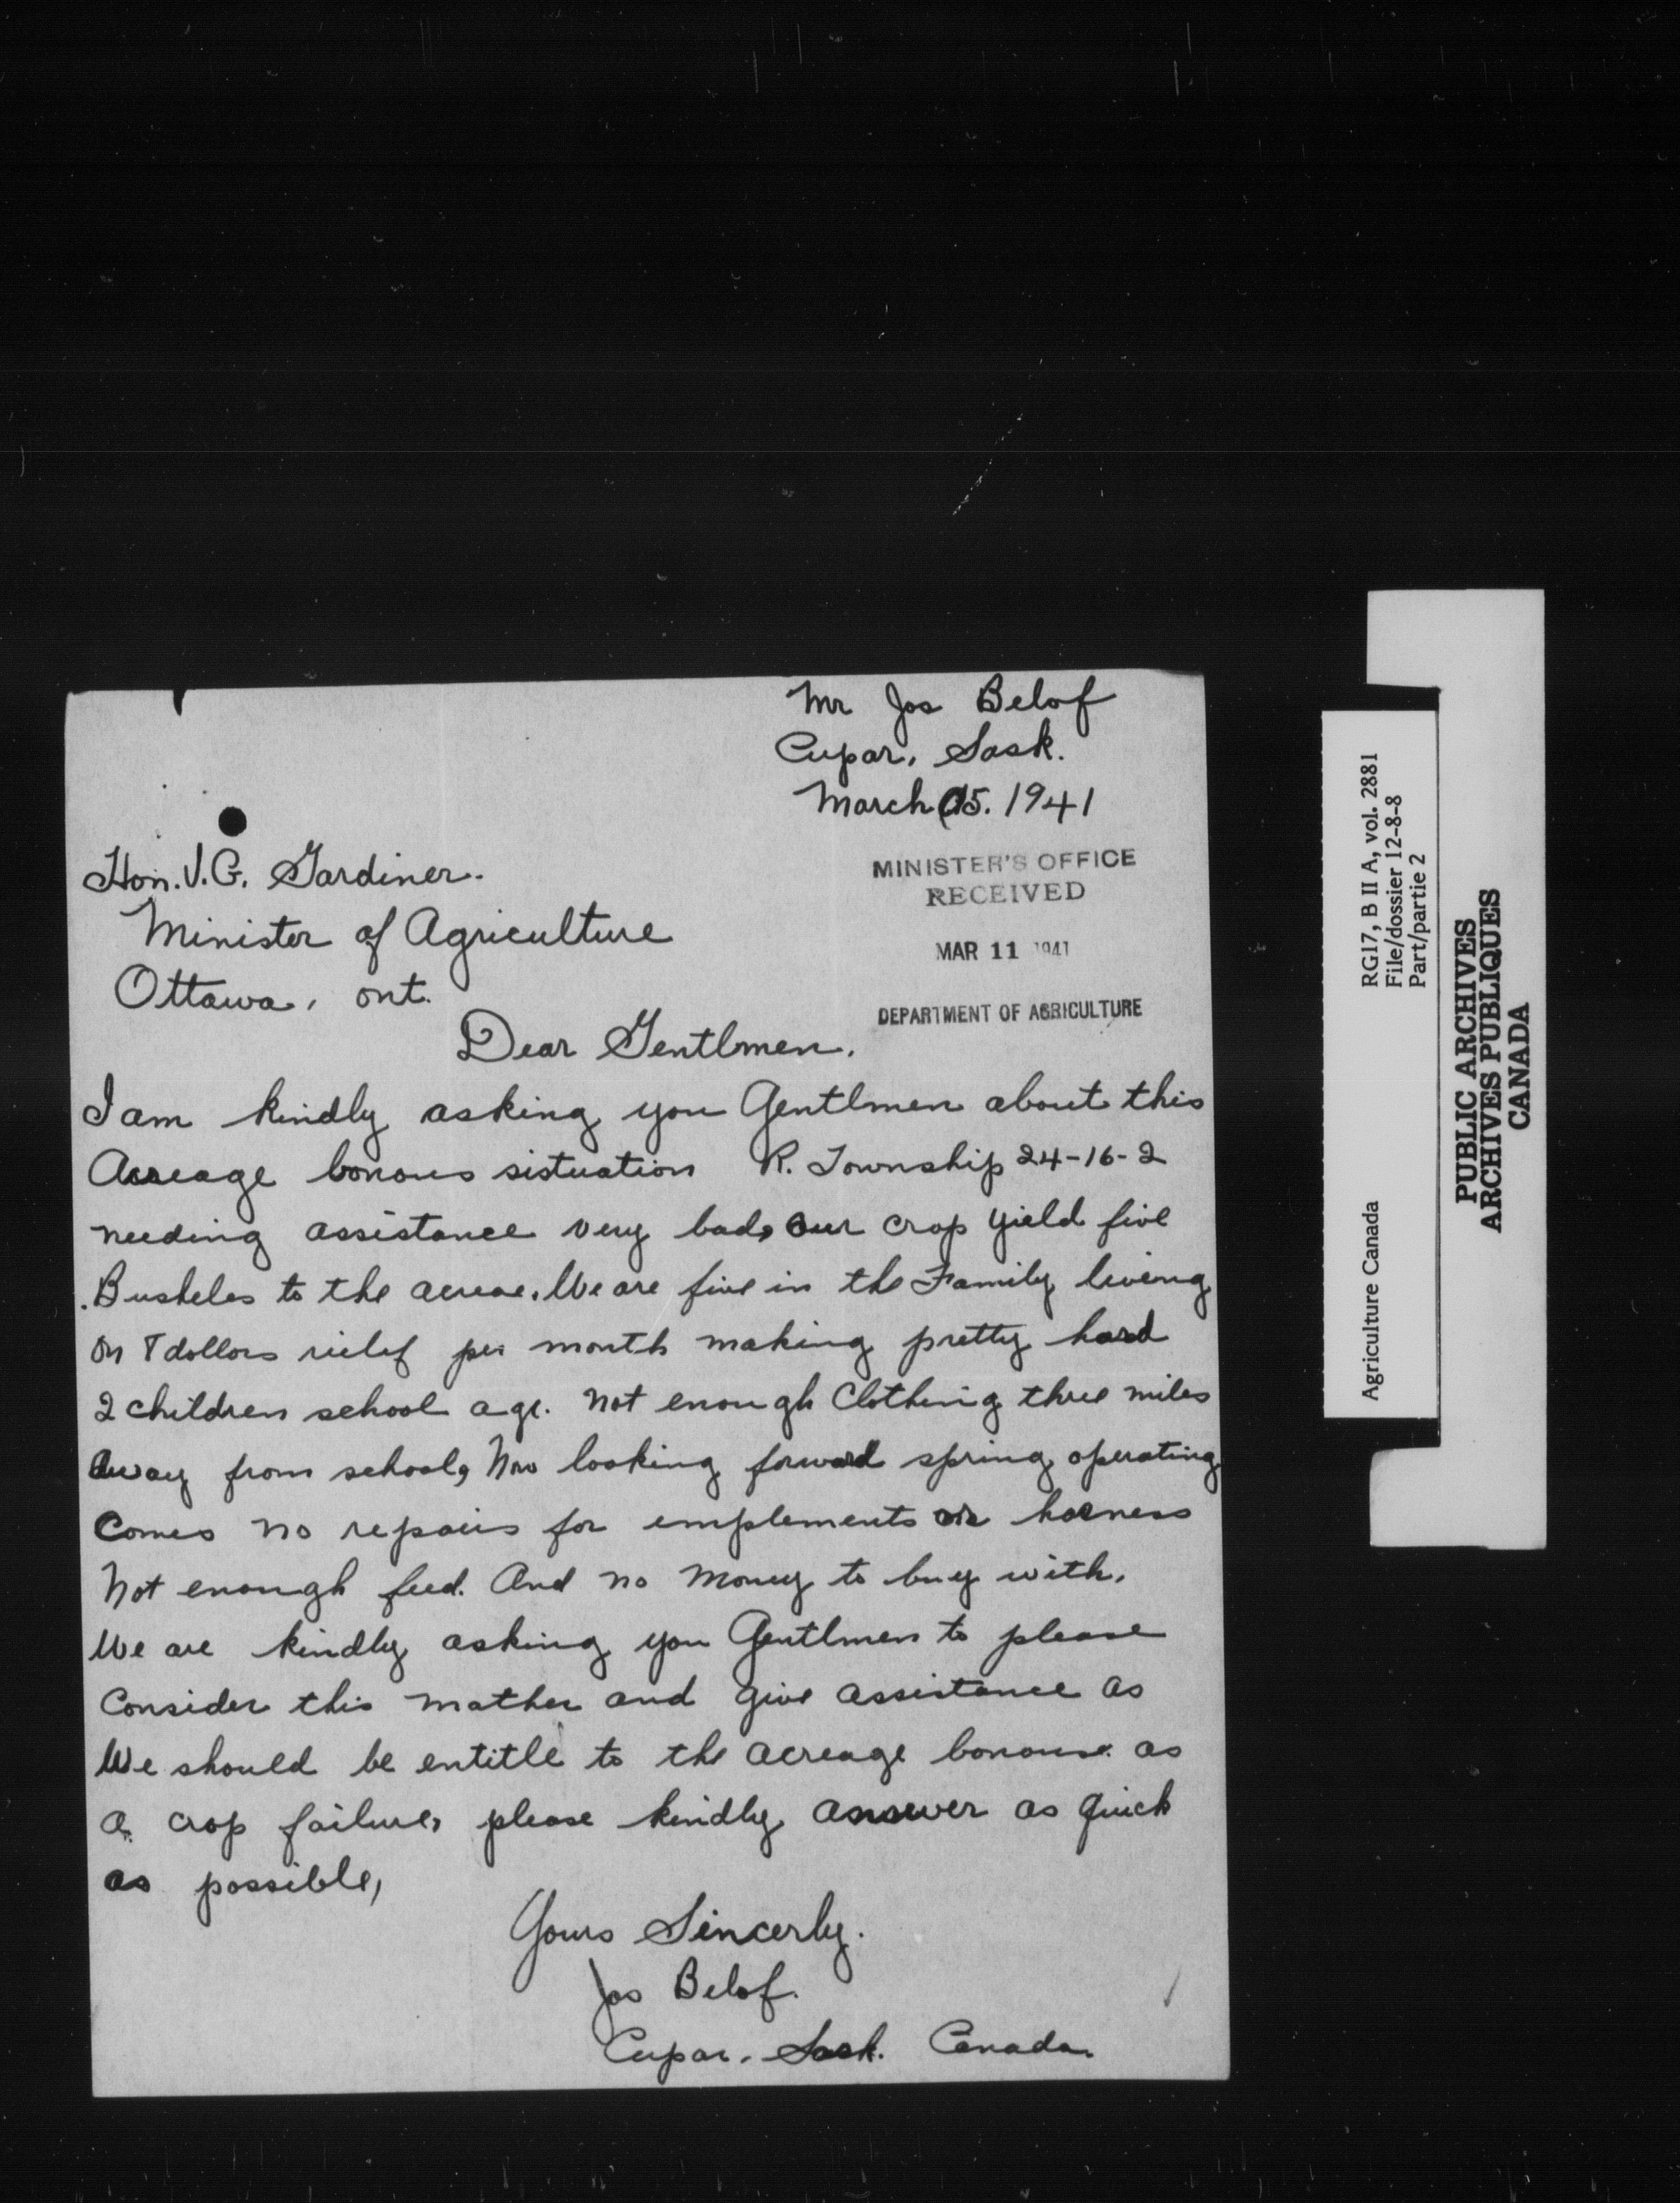 Mr Jos Belof
Cupar, Sask.
March 05. 1941
Hon. J. G. Gardiner.
Minister of Agriculture
Ottawa, ont.
MINISTER'S OFFICE
RECEIVED
MAR 11 1941
DEPARTMENT OF AGRICULTURE
Dear Gentlmen,
I am kindly asking you Gentlmen about this
Acreage bonous sistuation R. Township 24-16-2
needing assistance very bad, Our crop yield five
Busheles to the acreae. We are five in the Family liveing
On 8 dollors rielef per month making pretty hard
2 children school age. Not enough Clothing three miles
away from school, Now looking forward spring operating
Comes no repairs for emplements or harness
Not enough feed. And no Money to buy with.
We are kindly asking you Gentlmen to please
Consider this mather and give assistance as
We should be entitle to the acreage bonouse as
a crop failure, please kindly answer as quick
as possible,
Yours Sincerly.
Jos Belof.
Cupar, Sask. Canada.
Agriculture Canada
RG17, B II A, vol. 2881
File/dossier 12-8-8
Part/partie 2
PUBLIC ARCHIVES
ARCHIVES PUBLIQUES
CANADA